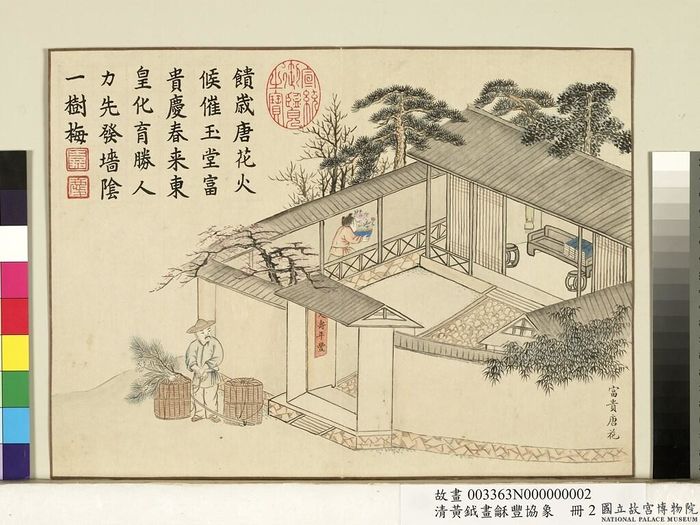 饋歲唐花火
候催玉堂富
貴慶春来東
皇化育勝人
力先發墻陰
一樹梅
宣統
御覽
之寶
壽年豐
富貴唐花
故畫 003363N000000002
清黃鉞畫龢豐協象 冊 2
國立故宮博物院
NATIONAL PALACE MUSEUM